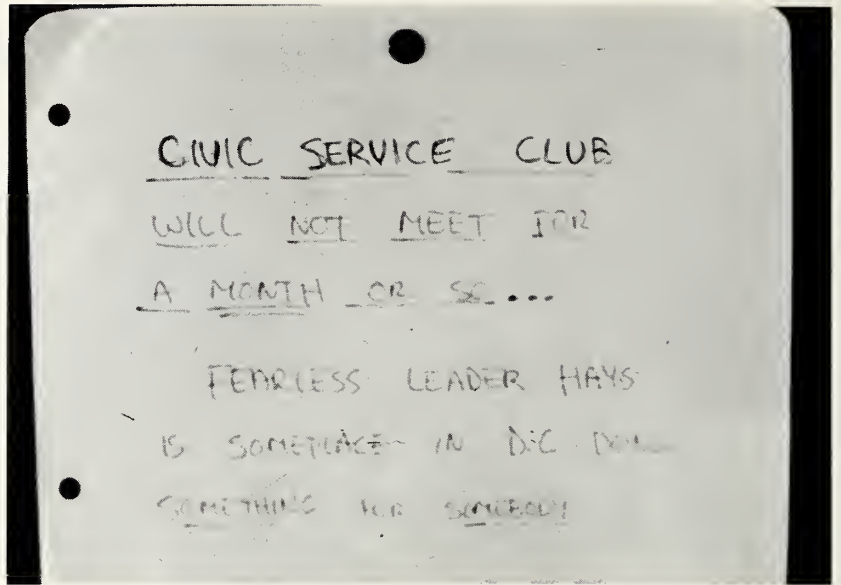 CIVIC SERVICE CLUB
WILL NOT MEET FOR
A MONTH OR SO...
FEARLESS LEADER HAYS
IS SOMEPLACE IN D.C.
SOMETHING FOR SOMEBODY